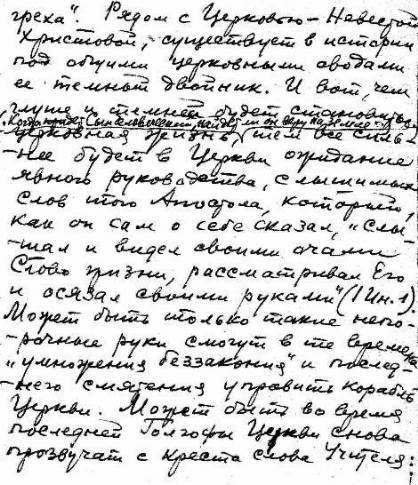 греха". Рядом с Церковью-Невестой
Христовой, существует в истории
под общими церковными сводами
ее темный двойник. И вот, чем
глуше и темнее будет становиться
Когда придет Сын Человеческий найдет ли он веру на земле
церковная жизнь, тем все силь-
-нее будет в Церкви ожидание
явного руководства, слышимых
слов того Апостола, который,
как он сам о себе сказал, "слы-
-шал и видел своими очами
Слово жизни, рассматривал Его
и осязал своими руками" (I Ин. 1).
Может быть только такие непо-
-рочные руки смогут в те времена
"умножения беззакония" и послед-
-него смятения управить корабль
Церкви. Может быть во время
последней Голгофы Церкви снова
прозвучат с креста слова Учителя